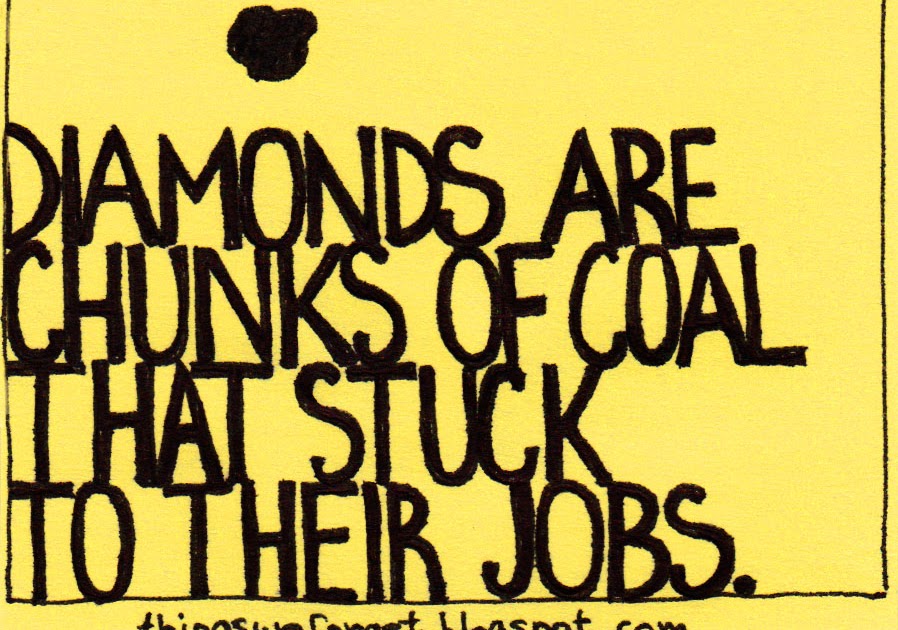 DIAMONDS ARE
CHUNKS OF COAL
THAT STUCK
TO THEIR JOBS.
thingsweforget.blogspot.com